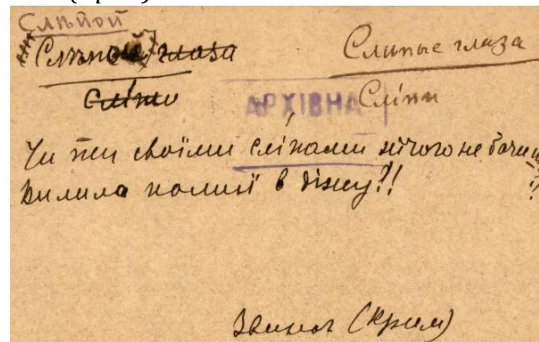 Слѣпой
глаза Слипые глаза
Сліпи
АРХІВНА
Чи ти своїми сліпами нічого не бачиш?
Вилила помиї в діжу?!
(Крим)